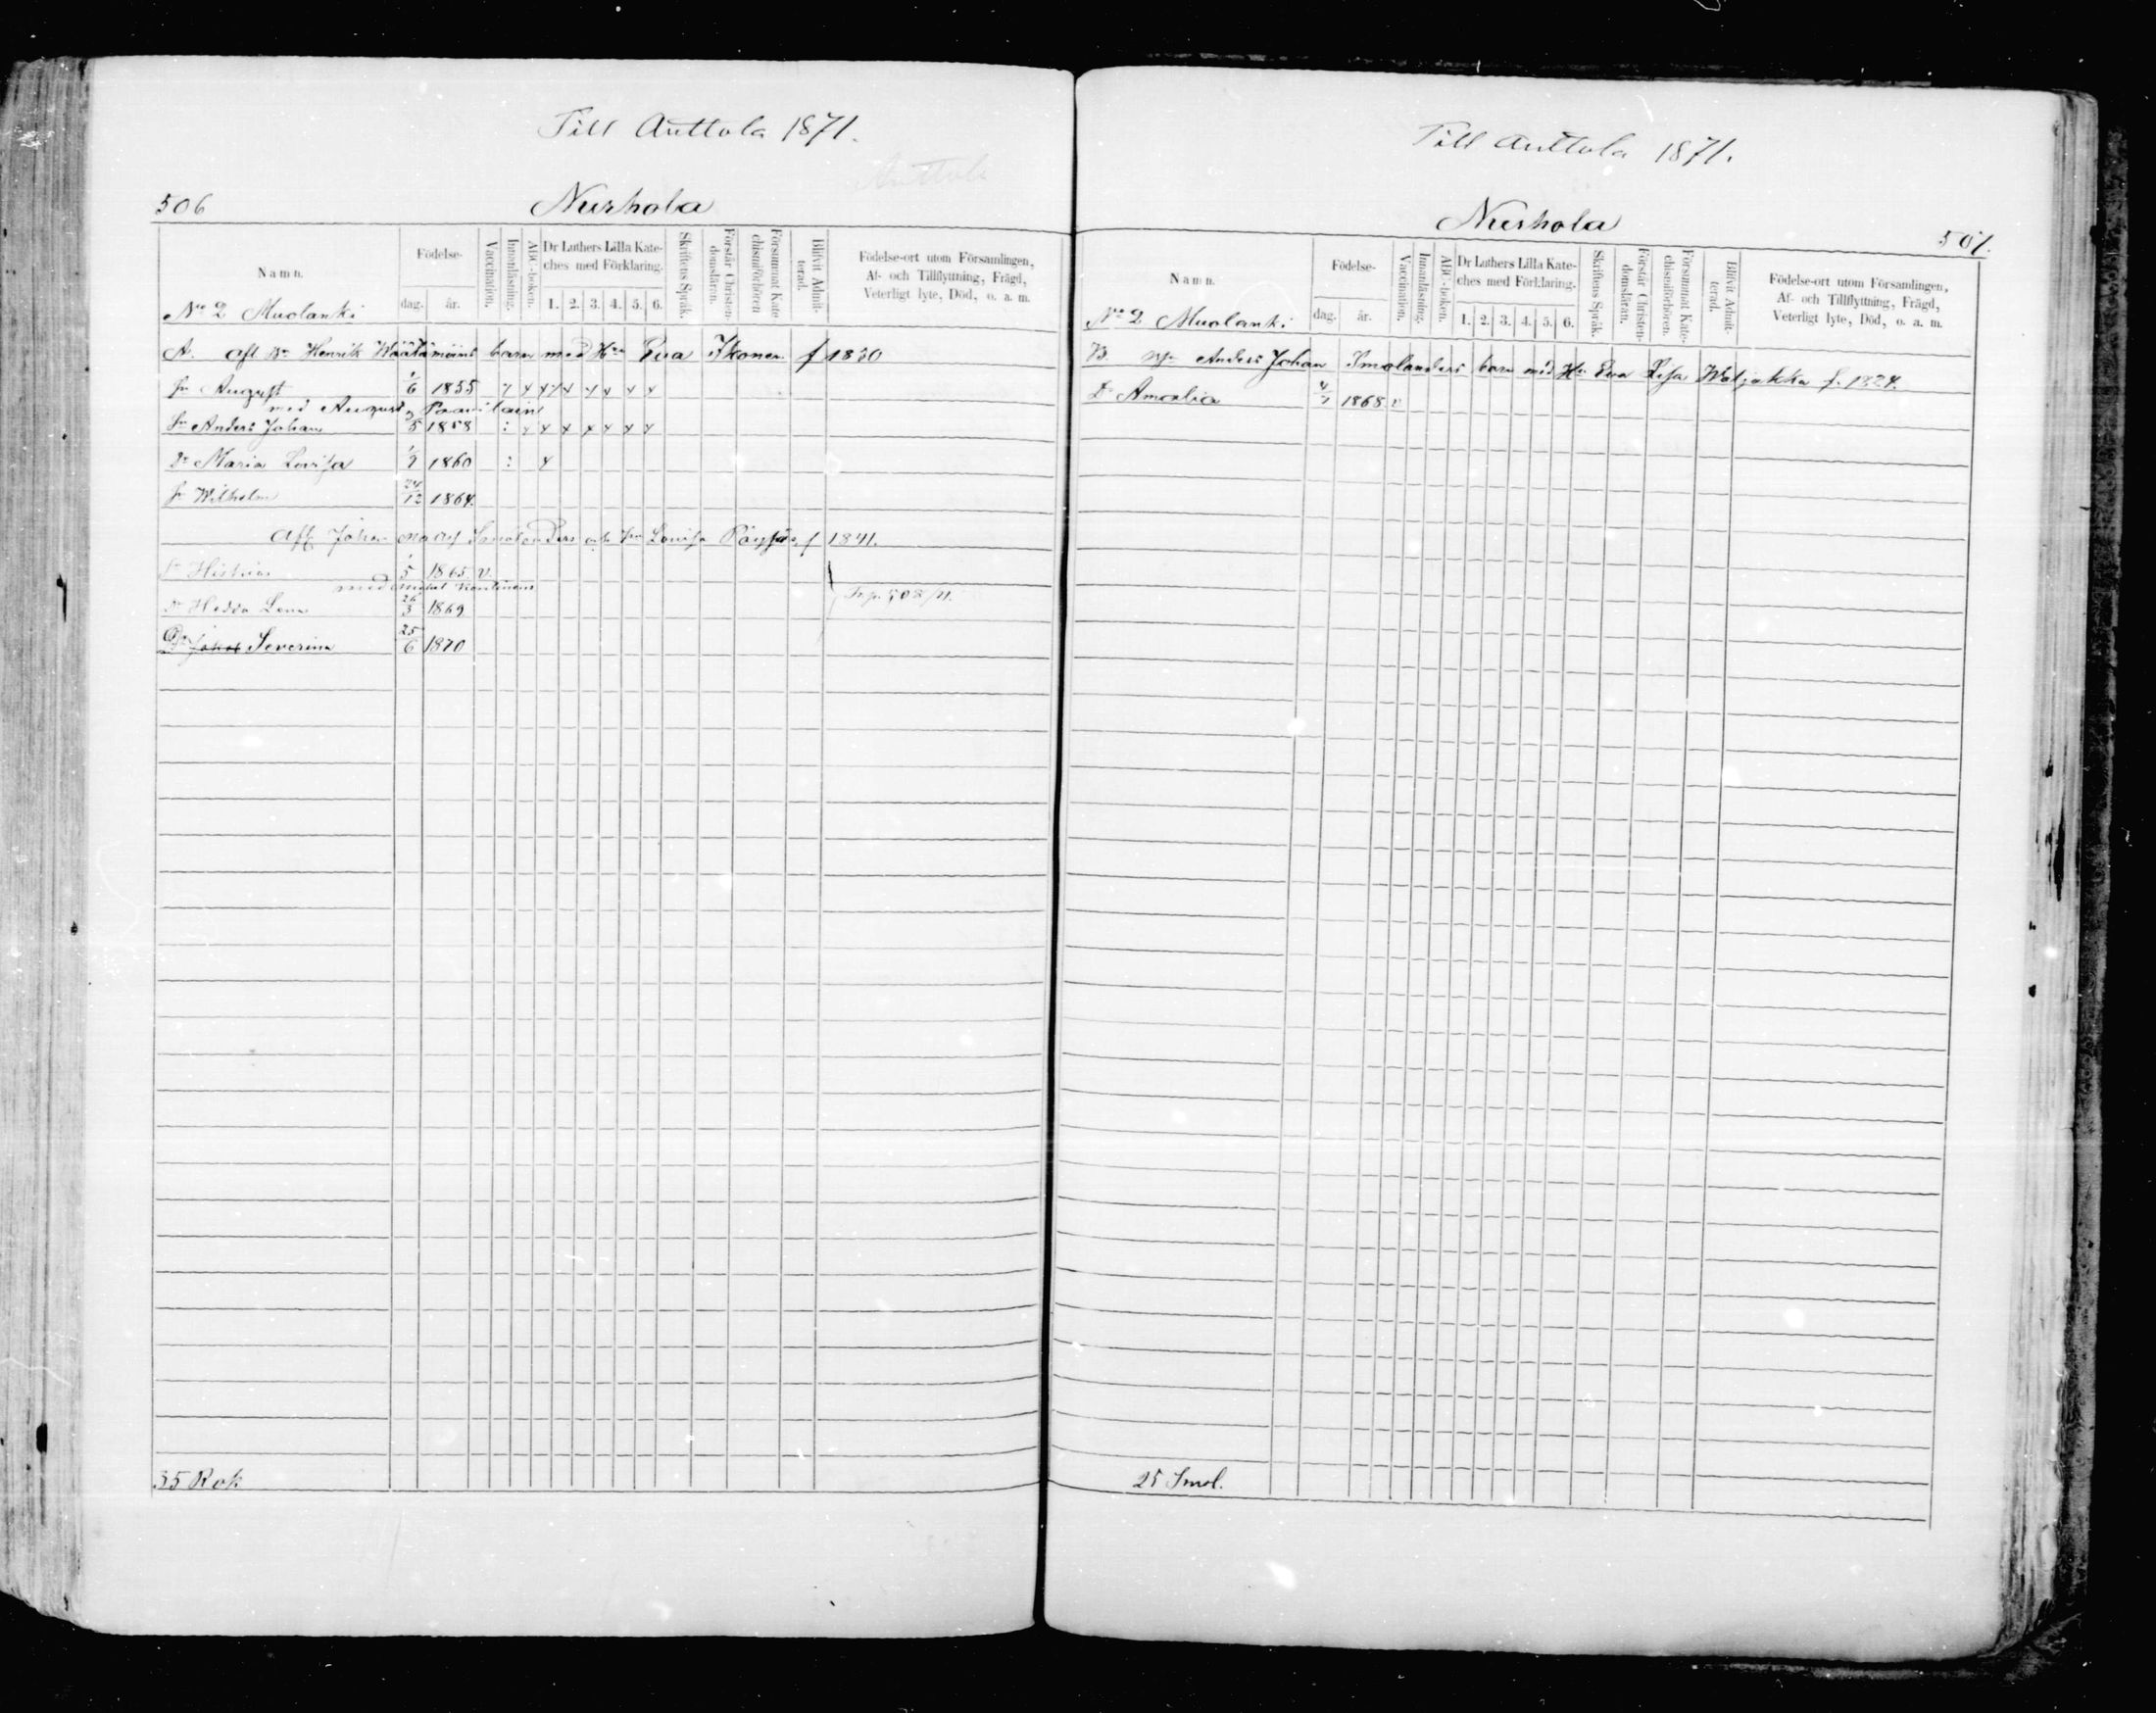 Till Anttola 1871.
Anttola
506
Nurhola
Namn.
Födelse-
dag. år.
Vaccination.
Innanläsning.
ABC-boken.
Dr Luthers Lilla Kate-
ches med Förklaring.
1. 2. 3. 4. 5. 6.
Skriftens Språk.
Förstår Christen-
domsläran.
Försummat Kate-
chismiförhören
Blifvit Admit-
terad.
Födelse-ort utom Församlingen,
Af- och Tillflyttning, Frägd,
Veterligt lyte, Död, o. a. m.
No 2 Muolanki
A. afl Bn Henrik Wäätämöins barn med Hu Eva Ikonen f 1830
Sn August 1/6 1855
med August
Sn Anders Johan 5 1858
Dr Maria Lovisa 1860
Sn Wilhelm 24/12 1864
Afl Johan Smolanders Lovisa f 1841.
5 1865 v.
med
Dr Hedda Lena 26/3 1869
Severina 25/6 1870
35 Rok
Till Anttola 1871.
Nurhola
507.
Namn.
Födelse-
dag. år.
Vaccination.
Innanläsning.
ABC-boken.
Dr Luthers Lilla Kate-
ches med Förklaring.
1. 2. 3. 4. 5. 6.
Skriftens Språk.
Förstår Christen-
domsläran.
Försummat Kate-
chismiförhören.
Blifvit Admit-
terad.
Födelse-ort utom Församlingen,
Af- och Tillflyttning, Frägd,
Veterligt lyte, Död, o. a. m.
No 2 Muolanki
B. Anders Johan Smolanders barn med Hu Eva Lisa Watjakka f. 1824.
Dr Amalia 1868 v
25 Smol.